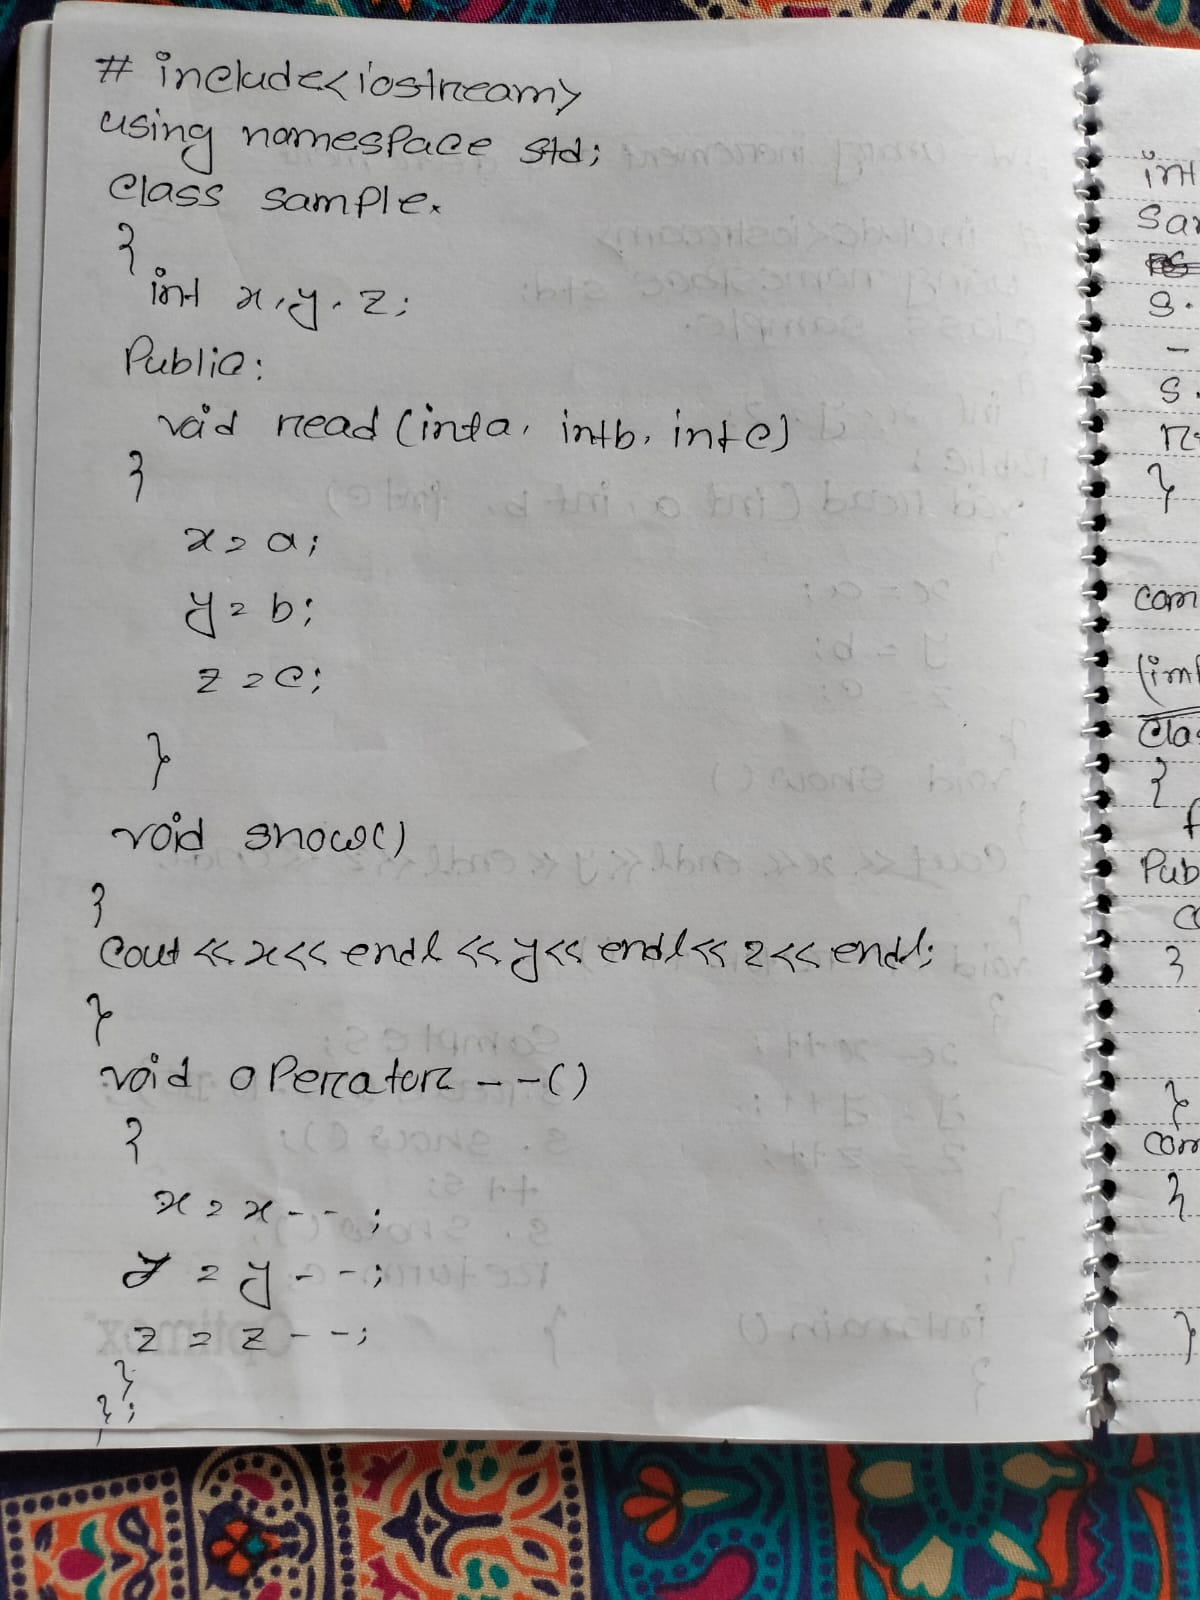 # include<iostream>
using namespace std;
class sample.
{
int x, y, z;
Public:
void read (int a, int b, int c)
{
x = a;
y = b;
z = c;
}
void show()
{
Cout << x << endl << y << endl << z << endl;
}
void operator --()
{
x = x--;
y = y--;
z = z--;
}
};
int
s.
-
s.
}
{
{
}
{
}